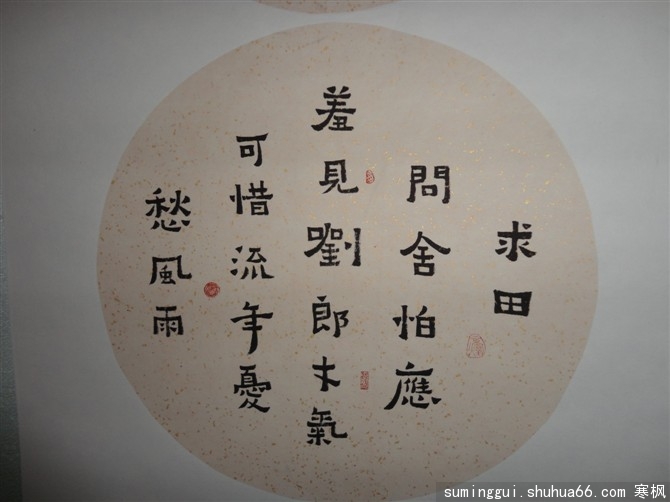 求田
問舍怕應
羞見劉郎才氣
可惜流年憂
愁風雨
suminggui.shuhua66.com 寒枫